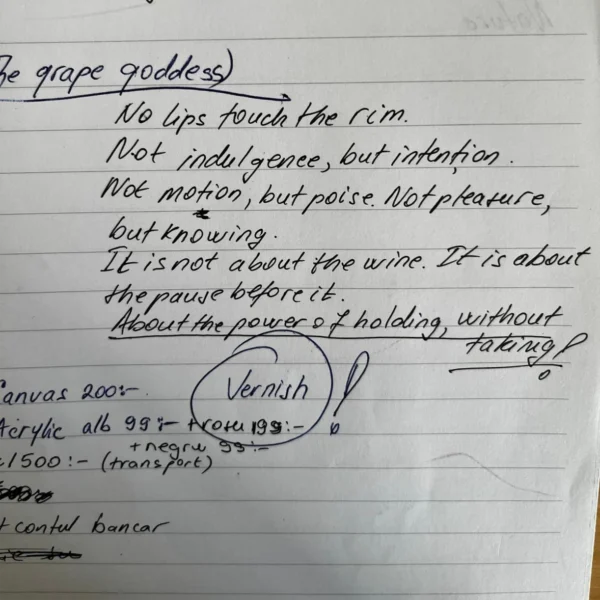 he grape goddess)
No lips touch the rim.
Not indulgence, but intention.
Not motion, but poise. Not pleasure,
but knowing.
It is not about the wine. It is about
the pause before it.
About the power of holding, without
taking!
Canvas 200:-
Vernish!
Acrylic alb 99:- + rosu 199:-
+ negru 99:-
1500:- (transport)
contul bancar